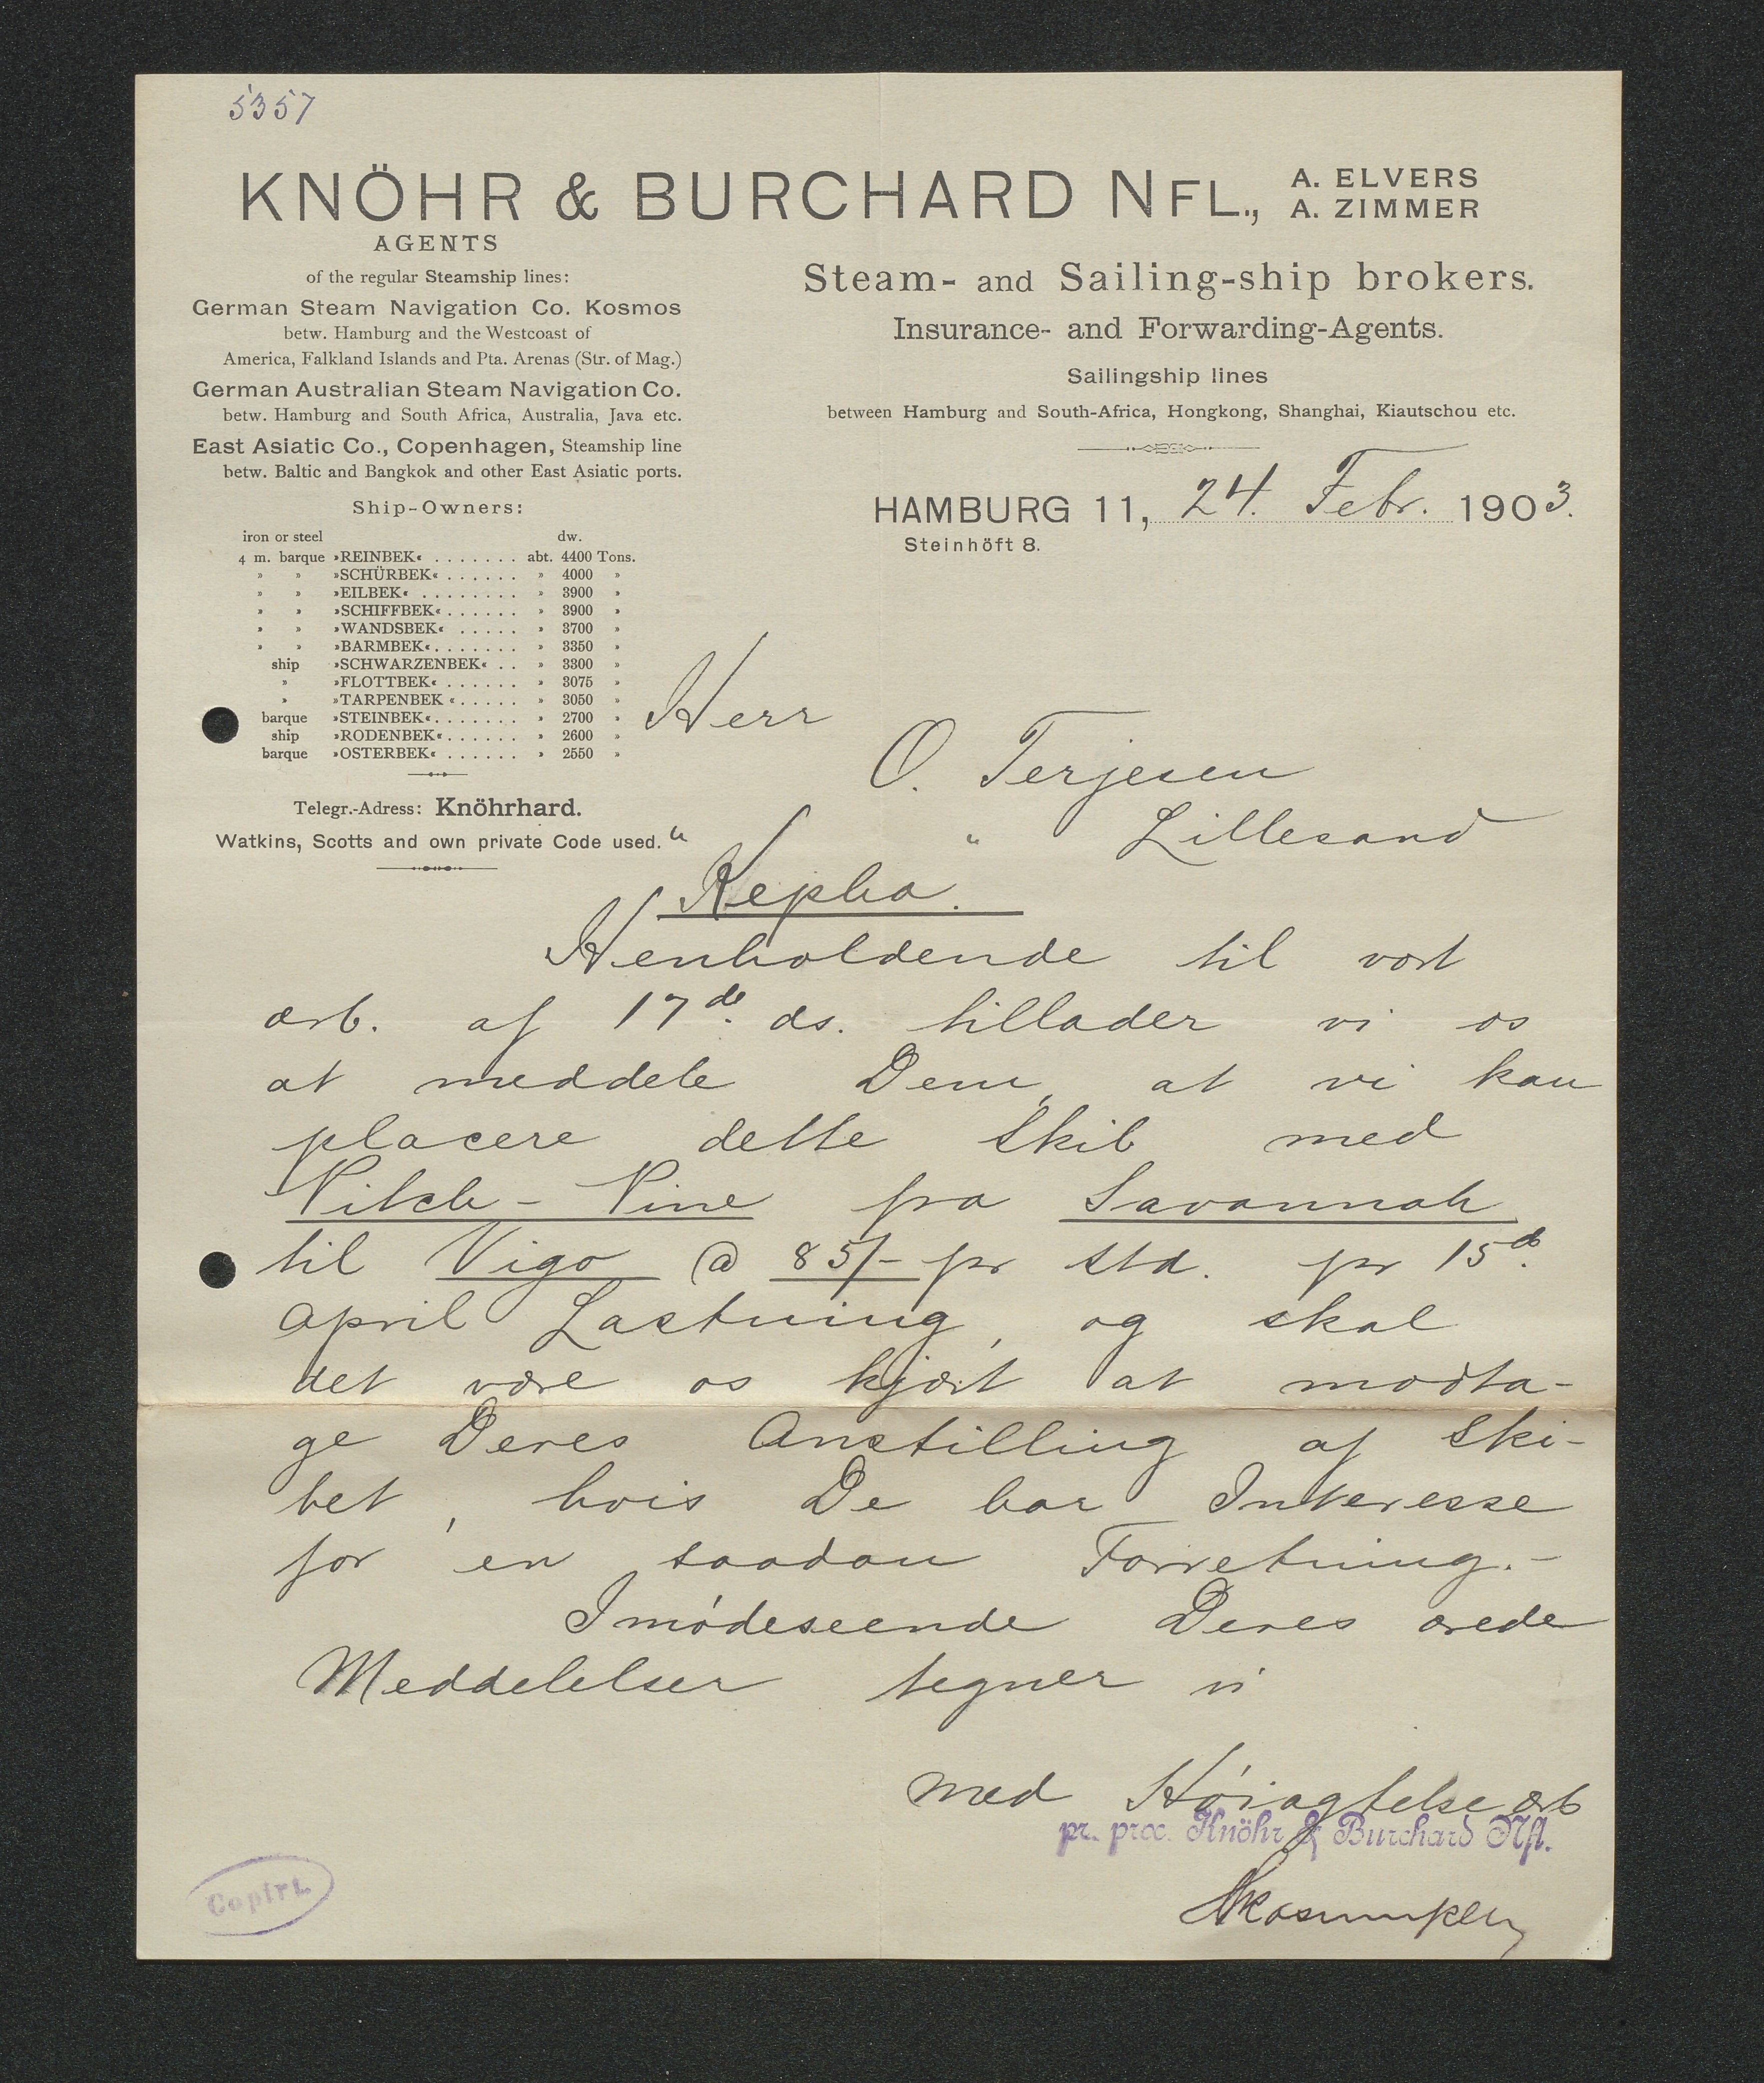 5357
KNÖHR & BURCHARD NFL., A. ELVERS
A. ZIMMER
AGENTS
of the regular Steamship lines:
German Steam Navigation Co. Kosmos
betw. Hamburg and the Westcoast of
America, Falkland Islands and Pta. Arenas (Str. of Mag.)
German Australian Steam Navigation Co.
betw. Hamburg and South Africa, Australia, Java etc.
East Asiatic Co., Copenhagen, Steamship line
betw. Baltic and Bangkok and other East Asiatic ports.
Ship-Owners:
iron or steel dw.
4 m. barque »REINBEK« . . . . . . . abt. 4400 Tons.
» » »SCHÜRBEK« . . . . . . » 4000 »
» » »EILBEK« . . . . . . . . » 3900 »
» » »SCHIFFBEK« . . . . . . » 3900 »
» » »WANDSBEK« . . . . . » 3700 »
» » »BARMBEK« . . . . . . . » 3350 »
ship »SCHWARZENBEK« . . » 3300 »
» »FLOTTBEK« . . . . . . » 3075 »
» »TARPENBEK « . . . . . » 3050 »
barque »STEINBEK« . . . . . . . » 2700 »
ship »RODENBEK« . . . . . . » 2600 »
barque »OSTERBEK« . . . . . . » 2550 »
Telegr.-Adress: Knöhrhard.
Watkins, Scotts and own private Code used.
Steam- and Sailing-ship brokers.
Insurance- and Forwarding-Agents.
Sailingship lines
between Hamburg and South-Africa, Hongkong, Shanghai, Kiautschou etc.
HAMBURG 11, 24. Febr. 1903.
Steinhöft 8.
Herr
O. Terjesen
Lillesand
"Kepha."
Henholdende til vort
ærb. af 17de ds. tillader vi os
at meddele Dem, at vi kan
placere dette Skib med
Pitch-Pine fra Savannah
til Vigo @ 85/- pr Std. pr 15d.
April Lastning, og skal
det være os kjært at modta-
ge Deres Anstilling af Ski-
bet, hvis De har Interesse
for en saadan Forretning.-
Imødeseende Deres ærede
Meddelelser tegner vi
med Høiagtelse ærb
pr. proc. Knöhr & Burchard Nfl.
Copirt